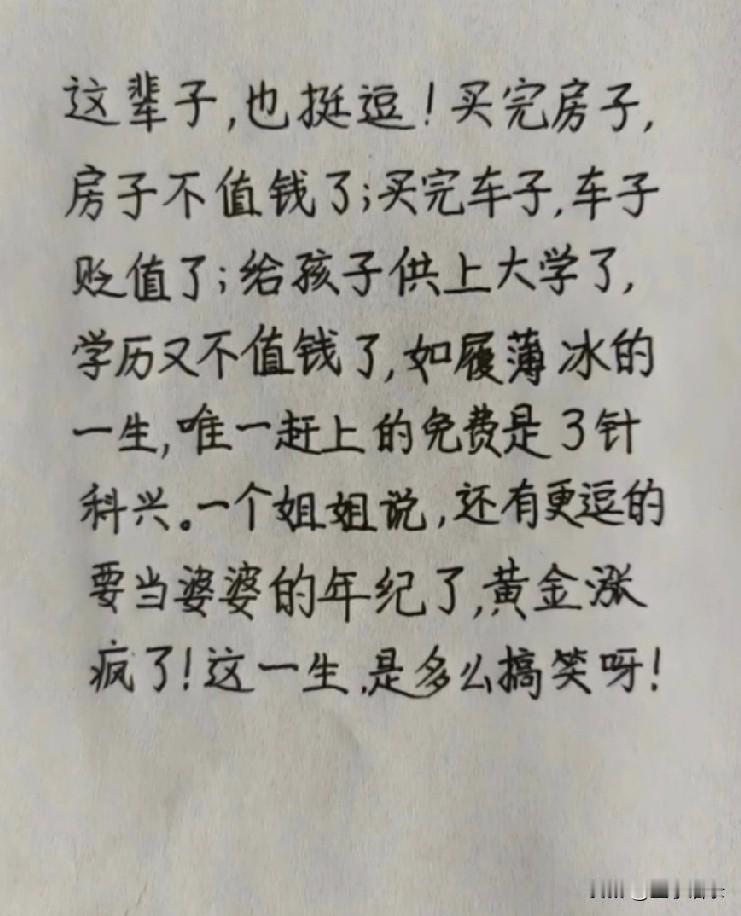 这辈子,也挺逗!买完房子,
房子不值钱了;买完车子,车子
贬值了;给孩子供上大学了,
学历又不值钱了,如履薄冰的
一生,唯一赶上的免费是3针
科兴。一个姐姐说,还有更逗的
要当婆婆的年纪了,黄金涨
疯了!这一生,是多么搞笑呀!